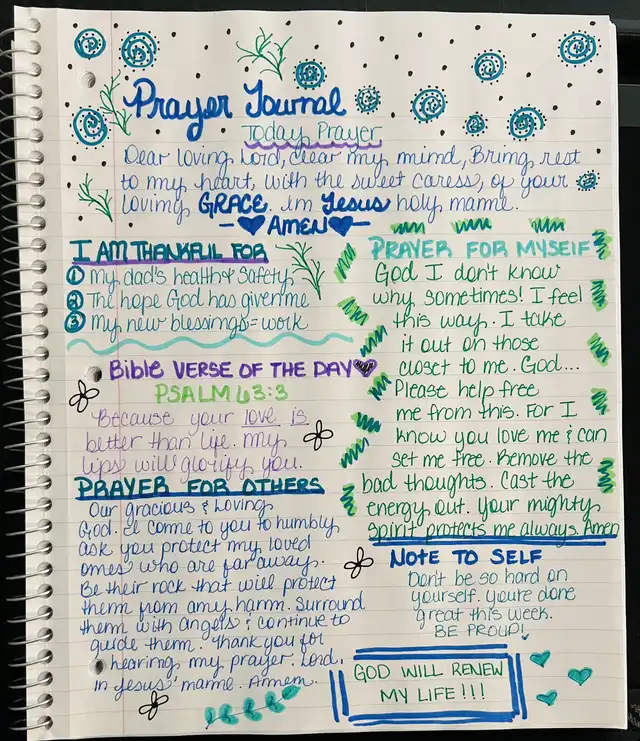 Prayer Journal
Today Prayer
Dear loving Lord, clear my mind, Bring rest
to my heart, with the sweet caress, of your
loving GRACE. In Jesus holy name.
AMEN
I AM THANKFUL FOR
1 My dad's health & Safety
2 The hope God has given me
3 My new blessings = work
Bible VERSE OF THE DAY
PSALM 63:3
Because your love is
better than life. my
lips will glorify you.
PRAYER FOR OTHERS
Our gracious & Loving
God. I come to you to humbly
ask you protect my loved
ones who are far away.
Be their rock that will protect
them from any harm. Surround
them with angels & continue to
guide them. Thank you for
hearing my prayer. Lord.
In Jesus' name. Amen.
PRAYER FOR MYSELF
God I don't know
why sometimes! I feel
this way. I take
it out on those
closet to me. God...
Please help free
me from this. For I
know you love me & can
set me free. Remove the
bad thoughts. Cast the
energy out. Your mighty
spirit protects me always. Amen
NOTE TO SELF
Don't be so hard on
yourself. you're done
great this week.
BE PROUD!
GOD WILL RENEW
MY LIFE!!!